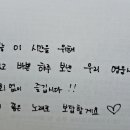 이 시간을 위해
바쁜 하루 보낸 우리
없이 즐깁시다!!
좋은 노래로 보답할게요♡